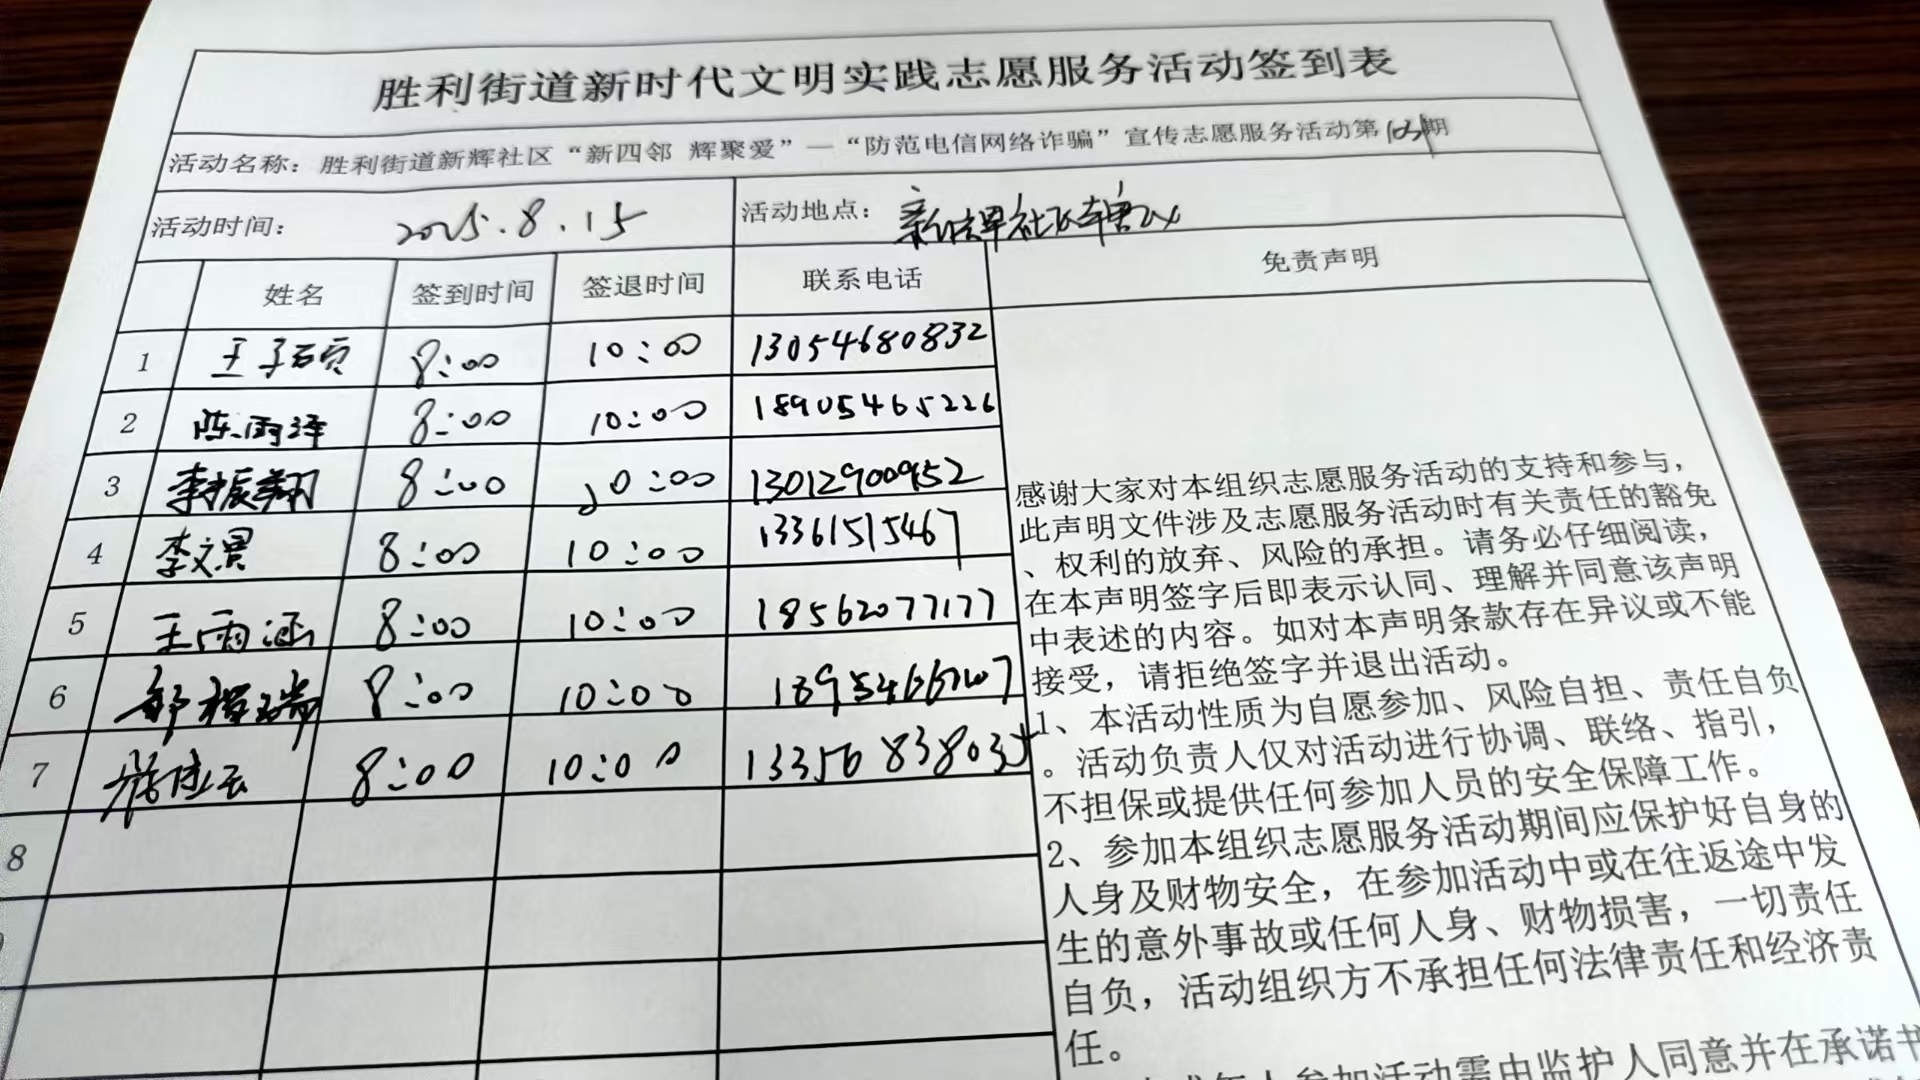 胜利街道新时代文明实践志愿服务活动签到表
活动名称：胜利街道新辉社区“新四邻 辉聚爱”—“防范电信网络诈骗”宣传志愿服务活动第 期
活动时间： 2025.8.15 活动地点： 新辉社区辖区
姓名 签到时间 签退时间 联系电话 免责声明
1 王子硕 8:00 10:00 13054680832
2 陈雨泽 8:00 10:00 18905465226
3 李振翔 8:00 10:00 13012900952
4 李文昊 8:00 10:00 13361515467
5 王雨涵 8:00 10:00 18562077177
6 8:00 10:00
7 8:00 10:00 13356838035
8
感谢大家对本组织志愿服务活动的支持和参与，
此声明文件涉及志愿服务活动时有关责任的豁免
、权利的放弃、风险的承担。请务必仔细阅读，
在本声明签字后即表示认同、理解并同意该声明
中表述的内容。如对本声明条款存在异议或不能
接受，请拒绝签字并退出活动。
1、本活动性质为自愿参加、风险自担、责任自负
。活动负责人仅对活动进行协调、联络、指引，
不担保或提供任何参加人员的安全保障工作。
2、参加本组织志愿服务活动期间应保护好自身的
人身及财物安全，在参加活动中或在往返途中发
生的意外事故或任何人身、财物损害，一切责任
自负，活动组织方不承担任何法律责任和经济责
任。
年人参加活动需由监护人同意并在承诺书